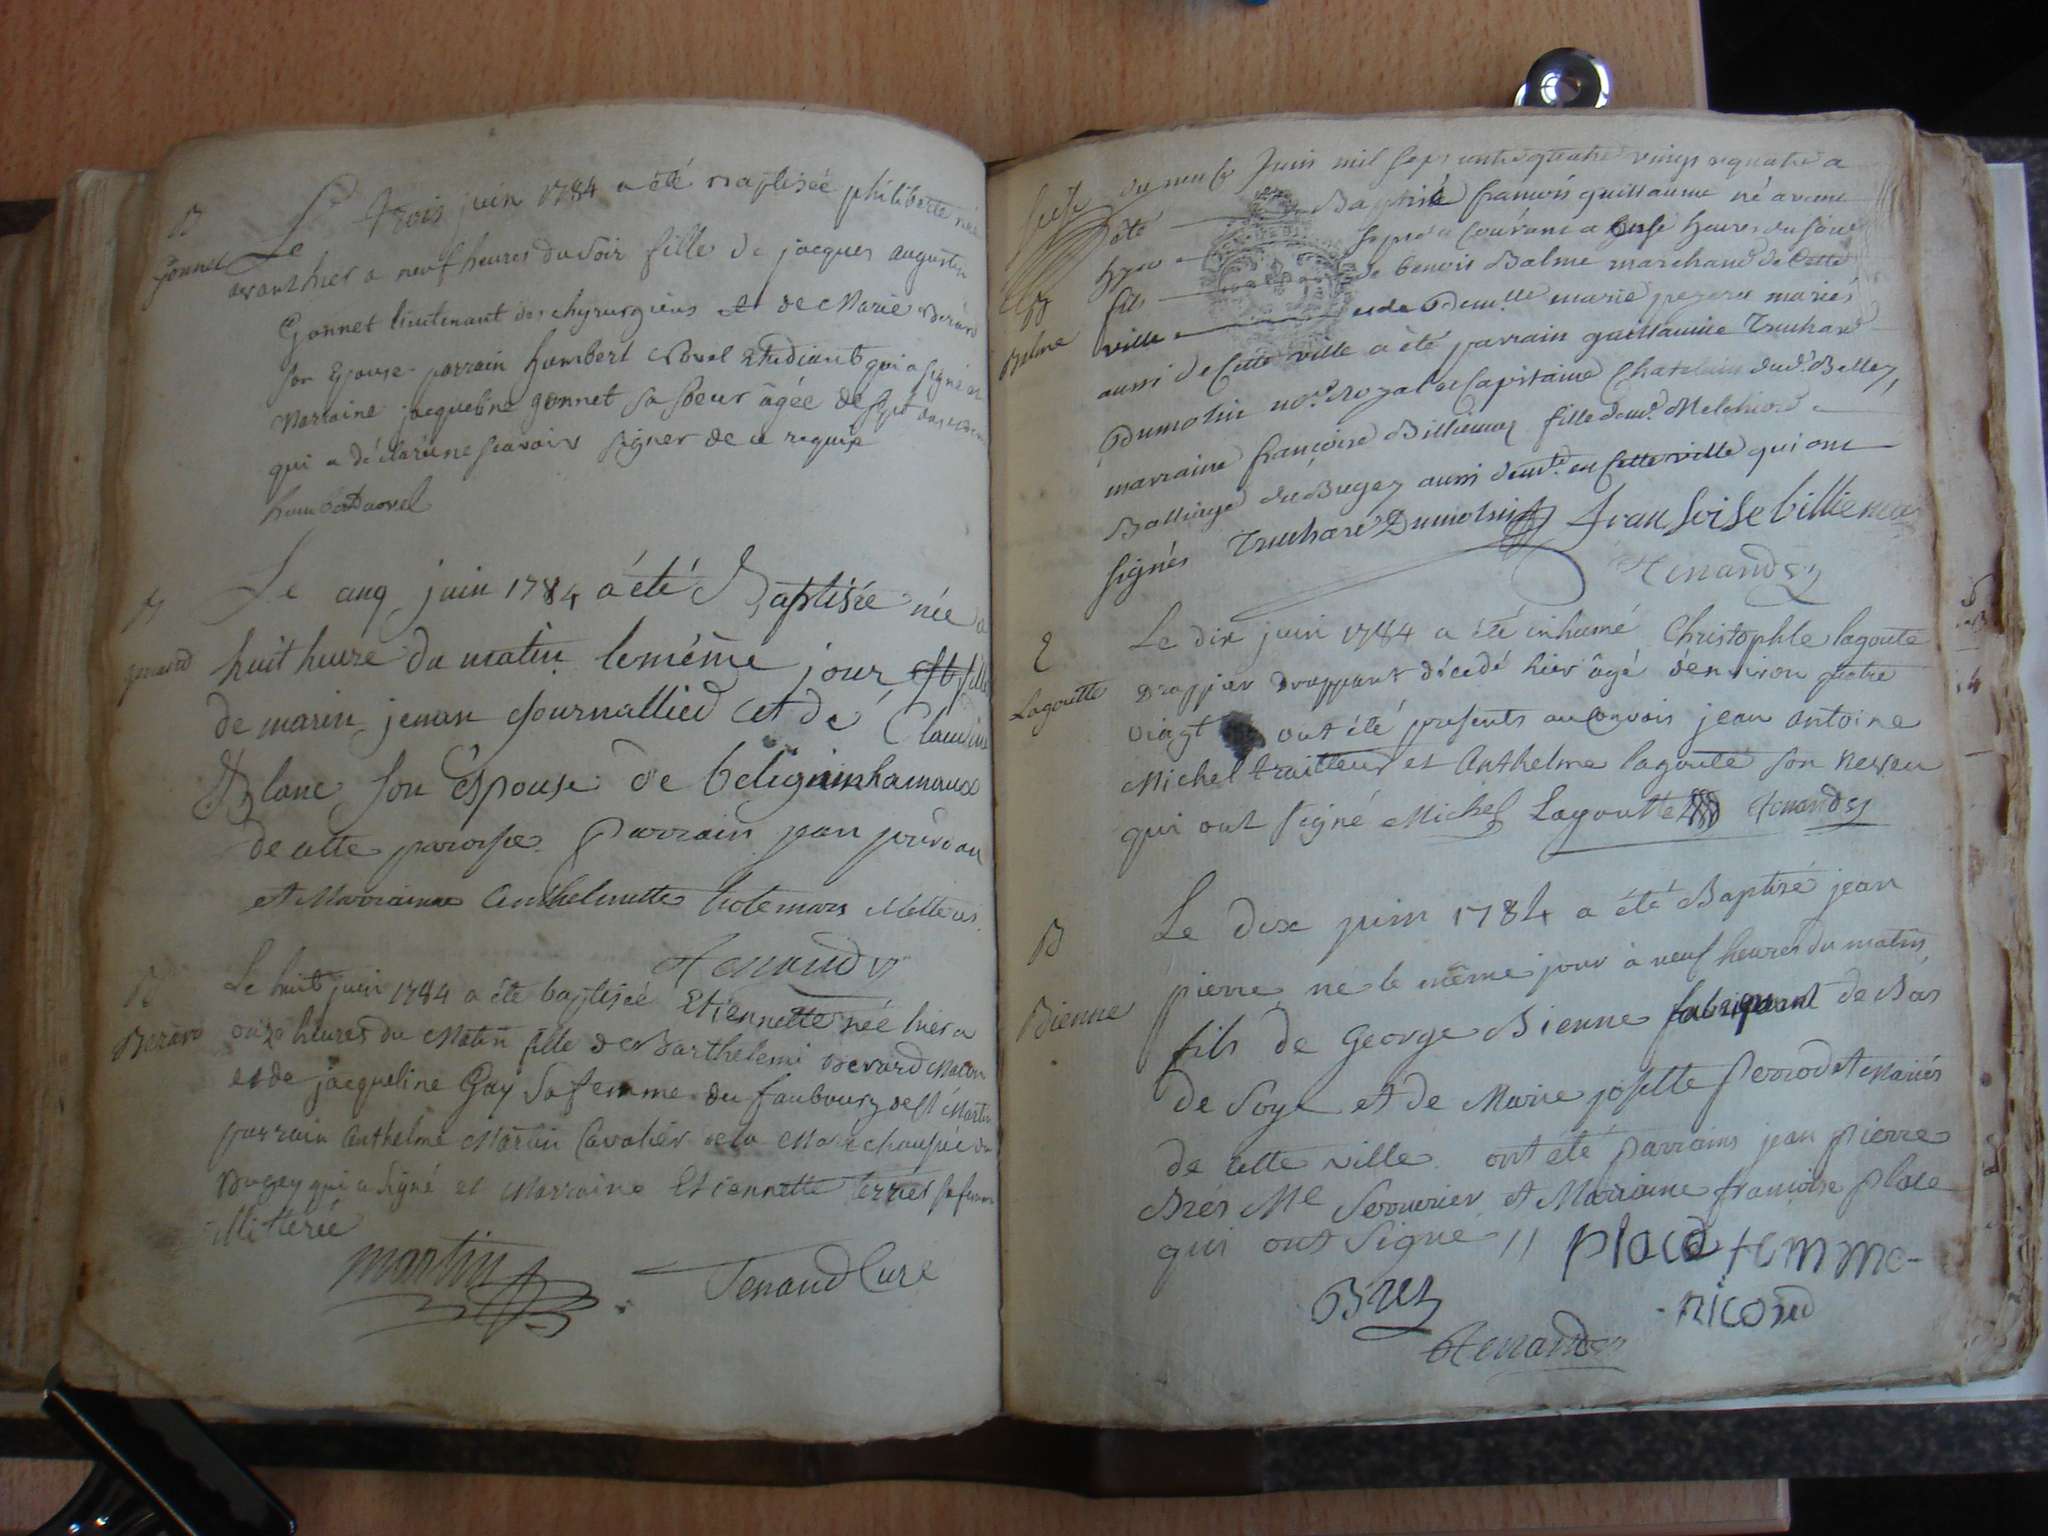 B
Gonnet
Le trois juin 1784 a été baptisée philiberte née
avanthier a neuf heures du soir fille de jacques augustin
Gonnet lieutenant des chyrurgiens et de Marie Berard
son Epouse. parrain humbert Novel Etudiant qui a signé et
Marraine jacqueline gonnet sa soeur âgée de sept ans
qui a déclaré ne scavoir signer de ce requise
B
Le cinq juin 1784 a été Baptisée née a
huit heure du matin le même jour fille
de marin jenan journallier et de Claudine
Blanc son épouse de belignin hamaux
de cette paroisse. Parrain jean
et Marrainne Anthelmette
Tenand
B
Berard
Le huit juin 1784 a été baptisée Etiennette née hier a
onze heures du Matin fille de Barthelemi Berard Macon
et de jacqueline Gay sa femme du faubourg de st Martin
parrain Anthelme Martin Cavalier de la Marechaussée du
Bugey qui a signé et Marraine Etiennette terrier sa femme
illitterée
martin Tenand Curé
du neuf Juin mil sept cent quatre vingt quatre a
été Baptisé francois guillaume né avant
hyer septieme Courant a onse heures du soir
B
Balme
fils de benoit Balme marchand de Cette
ville et de Demlle marie mariés
aussi de Cette ville a été parrain guillaume Truchard
Dumolin nore. royal et Capitaine Chatelain dud. Belley,
marraine françoise Billiemaz fille de mr. Melchior
Balliage du Bugey aussi demte. en Cette ville qui ont
signés Truchard Dumolin fransoise billiemaz
Tenand
E
Lagoutte
Le dix juin 1784 a été inhumé Christophle lagoute
drappier drappant décédé hier âgé d'environ quatre
vingt ont été presents au Convois jean antoine
Michel trailleur et Anthelme lagoute son neveu
qui ont signé Michel Lagoutte Tenand
B
Bienne
Le dix juin 1784 a été Baptisé jean
pierre né le même jour à neuf heures du matin,
fils de George Bienne fabriquant de Bas
de Soye et de Marie josette Perrodet Mariés
de cette ville. ont été parrains jean pierre
Brés Me Serrurier et Marraine francoise place
qui ont signé // place femme
Brez nicoud
Tenand